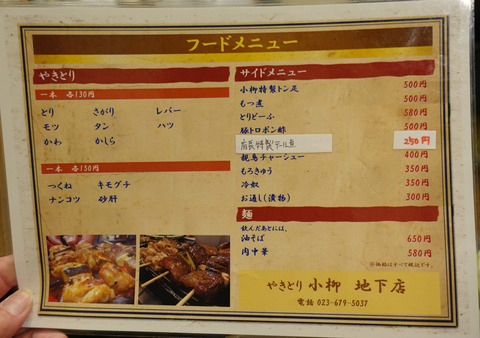 フードメニュー
やきとり
一本 各130円
とり さがり レバー
モツ タン ハツ
かわ かしら
一本 各150円
つくね キモグチ
ナンコツ 砂肝
サイドメニュー
小柳特製トン足 500円
もつ煮 500円
とりどーふ 580円
豚トロポン酢 500円
店長特製テール煮 250円
親鳥チャーシュー 400円
もろきゅう 350円
冷奴 350円
お通し(漬物) 300円
麺
飲んだあとには、
油そば 650円
肉中華 580円
※価格はすべて税込です。
やきとり 小柳 地下店
電話 023-679-5037